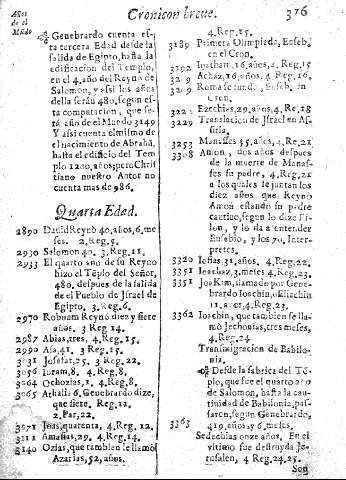 Años
de el
Mundo
Cronicon breue.
376
Genebrardo cuenta es-
ta tercera Edad desde la
salida de Egipto, hasta la
edificacion del Templo,
en el 4. año del Reyno de
Salomon, y assi los años
della serán 480, segun es-
ta computacion, que se-
rá año del Mundo 3149
Y assi cuenta el mismo de
el nacimiento de Abrahã,
hasta el edificio del Tem
plo 1200, años pero Christi
tiano nuestro Autor no
cuenta mas de 986.
Quarta Edad.
2890 Dauid Reynò 40, años, 6, me
ses. 2, Reg. 5.
2930 Salomon 40. 3, Reg. 11.
2933 El quarto año de su Reyno
hizo el Tẽplo del Señor,
480, despues de la salida
de el Pueblo de Jsrael de
Egipto. 3. Reg. 6.
2970 Roboam Reynò diez y siete
años. 3 Reg. 14.
2987 Abias, tres, 4. Reg. 15.
2990 Asa, 41. 3 Reg. 15.
3031 Josafat, 25. 3 Reg. 22.
3056 Ioram, 8. 4. Reg. 8.
3064 Ochozias, 1. 4, Reg. 8.
3065 Athalia 6, Genebrardo dize,
que siete. Reg. 11,
2, Par, 22.
3071 Joas, quarenta, 4. Reg. 12.
3111 Amasias, 29. 4, Reg. 14.
3140 Ozias, que tambien se llamò
Azarias, 52, años.
4, Reg. 15.
3189 Primera Olimpieda, Euseb.
en el Cron.
3192 Ioathan, 16, años, 4, Reg. 15
Achaz, 16, años, 4, Reg. 16,
Roma se funda, Euseb. in
Cron.
Ezechias, 29, años, 4, Re. 18
3229 Translacion de Jsrael en As
siria.
3253 Manasses 55, años, 4, Re. 21
3308 Amon, dos años despues
de la muerte de Manas-
ses su padre, 4, Reg. 21
a los quales se juntan los
diez años que Reynò
Amon estando su padre
cautiuo, segun lo dize Fi-
lon, y lo dà a entender
Eusebio, y los 70, Inter-
pretes.
3320 Iosias, 31, años, 4, Reg. 22.
3351 Ioachaz, 3, meses, 4, Reg. 23.
3351 Joakim, llamado por Gene-
brardo Ioschin, o Eliachin
11, años, 4, Reg, 23.
3362 Ioschin, que tambien se lla-
mò Jechonias, tres meses,
4, Reg. 24
Transmigracion de Babilo-
nia.
Desde la fabrica del Tẽ-
plo, que fue el quarto año
de Salomon, hasta la cau-
tiuidad de Babilonia, pas-
saron, segun Genebrardo,
419, años, y 6, meses.
3363
Sedechias onze años. En el
vltimo fue destruyda Je-
rusalen, 4 Reg. 24. 25.
Son